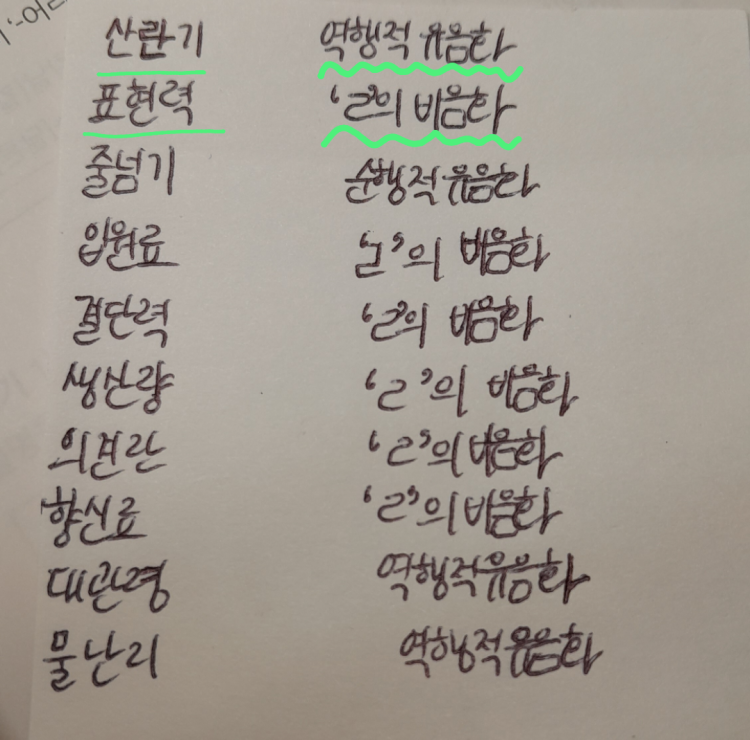 산란기 역행적 유음화
표현력 'ㄹ'의 비음화
줄넘기 순행적 유음화
입원료 'ㄹ'의 비음화
결단력 'ㄹ'의 비음화
생산량 'ㄹ'의 비음화
의견란 'ㄹ'의 비음화
향신료 'ㄹ'의 비음화
대관령 역행적 유음화
물난리 역행적 유음화